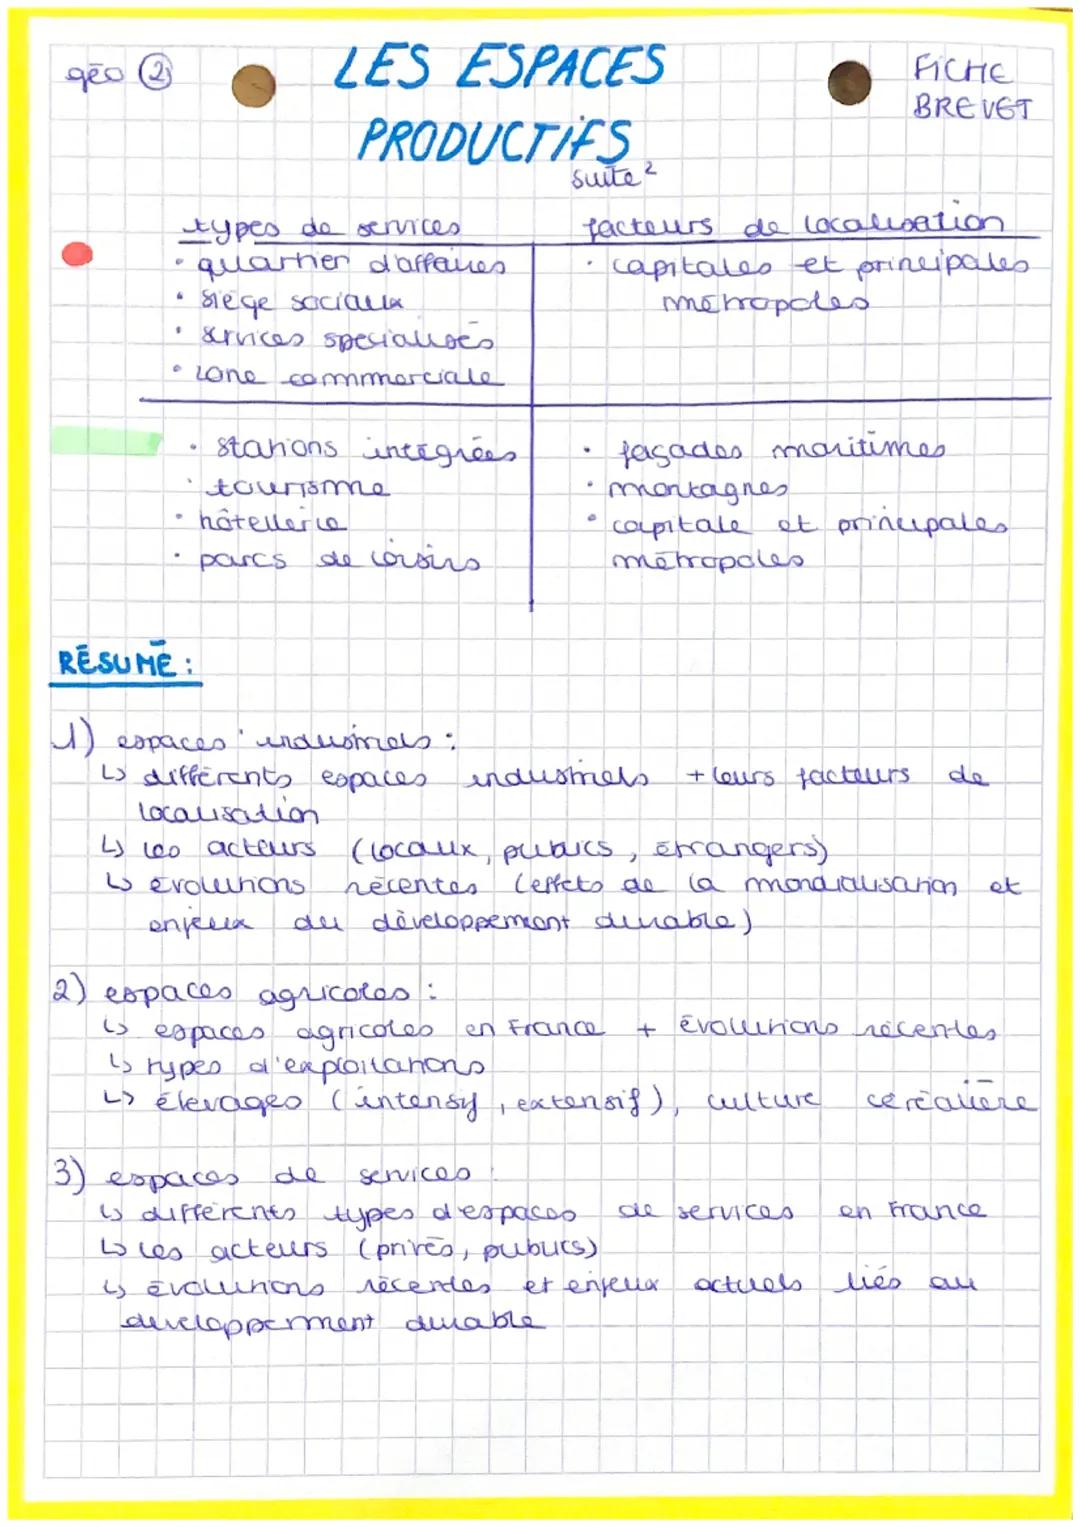 géo ②
LES ESPACES
FICHE
BREVET
PRODUCTIFS
suite ²
types de services
facteurs de localisation
• quartier d'affaires
• capitales et principales
métropoles
• siège sociaux
• services specialisés
• zone commmerciale
• stations intégrées
• façades maritimes
• tourisme
• montagnes
• hôtellerie
• capitale et principales
métropoles
• parcs de loisirs
RÉSUMÉ :
1) espaces industriels :
↳ différents espaces industriels + leurs facteurs de
localisation
↳ les acteurs (locaux, publics, étrangers)
↳ évolutions récentes (effets de la mondialisation et
enjeux du développement durable)
2) espaces agricoles :
↳ espaces agricoles en France + évolutions récentes
↳ types d'exploitations
↳ élevages (intensif, extensif), culture céréalière
3) espaces de services :
↳ différents types d'espaces de services en France
↳ les acteurs (privés, publics)
↳ évolutions récentes et enjeux actuels liés au
developpement durable